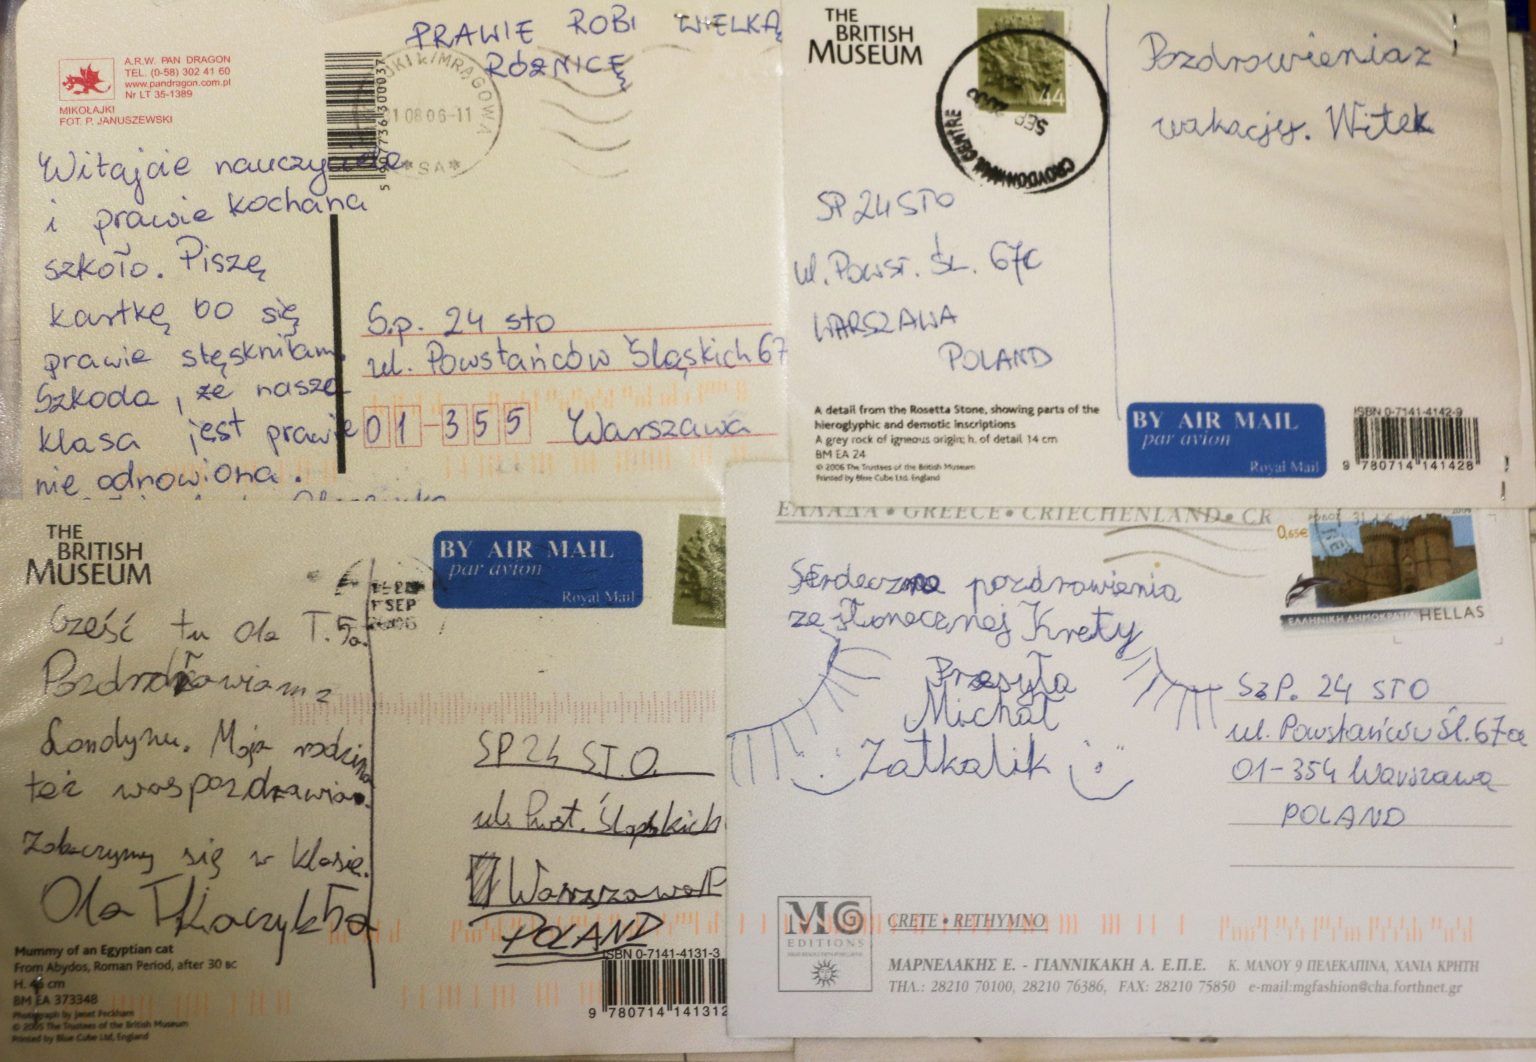 PRAWIE ROBI WIELKĄ
RÓŻNICĘ
A.R.W. PAN DRAGON
TEL. (0-58) 302 41 60
www.pandragon.com.pl
Nr LT 35-1389
MIKOŁAJKI
FOT. P. JANUSZEWSKI
MRĄGOWA
1 08 06-11
*SA*
Witajcie nauczyciele
i prawie kochana
szkoło. Piszę
kartkę bo się
prawie stęskniłam.
Szkoda, że nasza
klasa jest prawie
nie odnowiona.
S.p. 24 sto
ul. Powstańców Śląskich 67
01-355 Warszawa
THE
BRITISH
MUSEUM
44
SEP
CROYDON MAIL CENTRE
Pozdrowienia z
wakacjy. Witek
SP 24 STO
ul. Powst. Śl. 67c
WARSZAWA
POLAND
A detail from the Rosetta Stone, showing parts of the
hieroglyphic and demotic inscriptions
A grey rock of igneous origin; h. of detail 14 cm
BM EA 24
© 2006 The Trustees of the British Museum
Printed by Blue Cube Ltd, England
BY AIR MAIL
par avion
Royal Mail
ISBN 0-7141-4142-9
9 780714 141428
THE
BRITISH
MUSEUM
BY AIR MAIL
par avion
Royal Mail
SEP
Cześć tu Ola T. 5a.
Pozdrawiam z
Londynu. Moja rodzina
też was pozdrawia.
Zobaczymy się w klasie.
Ola
SP 24 S.T.O.
ul. Pwst. Śląskich
Warszawa
POLAND
Mummy of an Egyptian cat
From Abydos, Roman Period, after 30 BC
BM EA 373348
Photograph by Janet Peckham
© 2005 The Trustees of the British Museum
Printed by Blue Cube Ltd, England
ISBN 0-7141-4131-3
9 780714 141312
ΕΛΛΑΔΑ • GREECE • GRIECHENLAND • GR
0,65€
ΕΛΛΗΝΙΚΗ ΔΗΜΟΚΡΑΤΙΑ HELLAS
Serdeczne pozdrowienia
ze słonecznej Krety
Przesyła
Michał
Zatkalik
SzP. 24 STO
ul. Powstańców Śl. 67a
01-354 Warszawa
POLAND
MG
EDITIONS
CRETE • RETHYMNO
ΜΑΡΝΕΛΑΚΗΣ Ε. - ΓΙΑΝΝΙΚΑΚΗ Α. Ε.Π.Ε. Κ. ΜΑΝΟΥ 9 ΠΕΛΕΚΑΠΙΝΑ, ΧΑΝΙΑ ΚΡΗΤΗ
ΤΗΛ.: 28210 70100, 28210 76386, FAX: 28210 75850 e-mail:mgfashion@cha.forthnet.gr